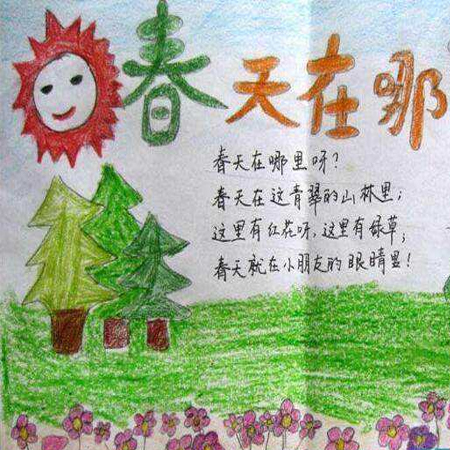 春天在哪
春天在哪里呀?
春天在这青翠的山林里;
这里有红花呀,这里有绿草;
春天就在小朋友的眼睛里!